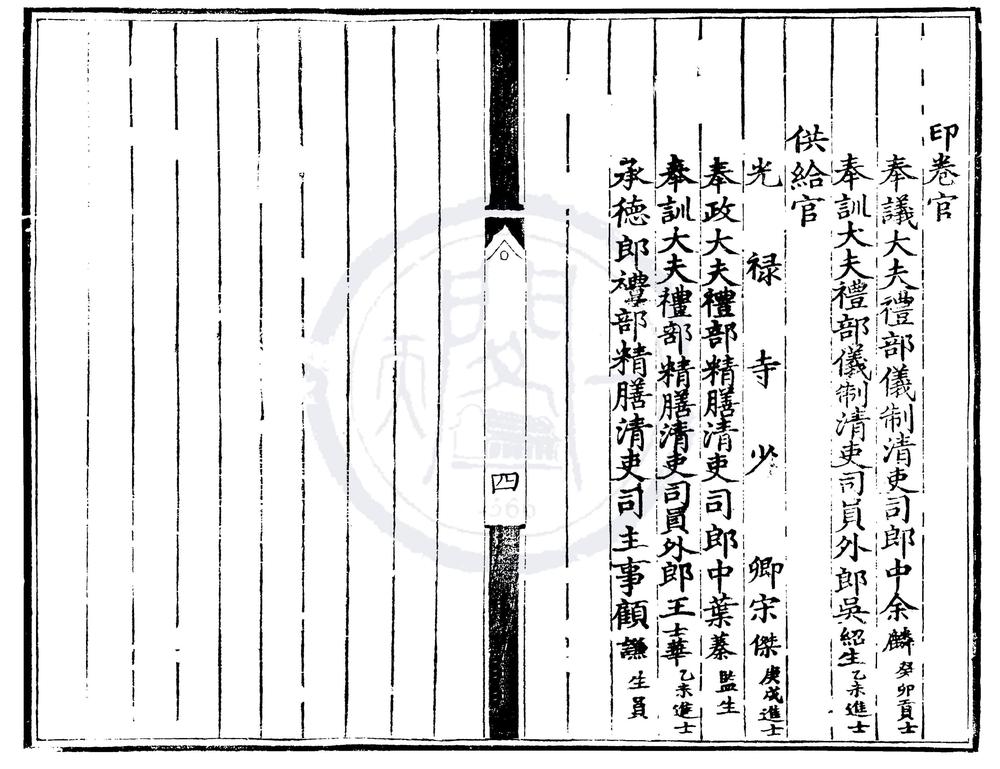 印卷官
奉議大夫禮部儀制清吏司郎中余麟癸卯貢士
奉訓大夫禮部儀制清吏司員外郎吳紹生乙未進士
供給官
光禄寺少卿宋傑庚戌進士
奉政大夫禮部精膳清吏司郎中葉蓁監生
奉訓大夫禮部精膳清吏司員外郎王士華乙未進士
承德郎禮部精膳清吏司主事顧謙生員
四